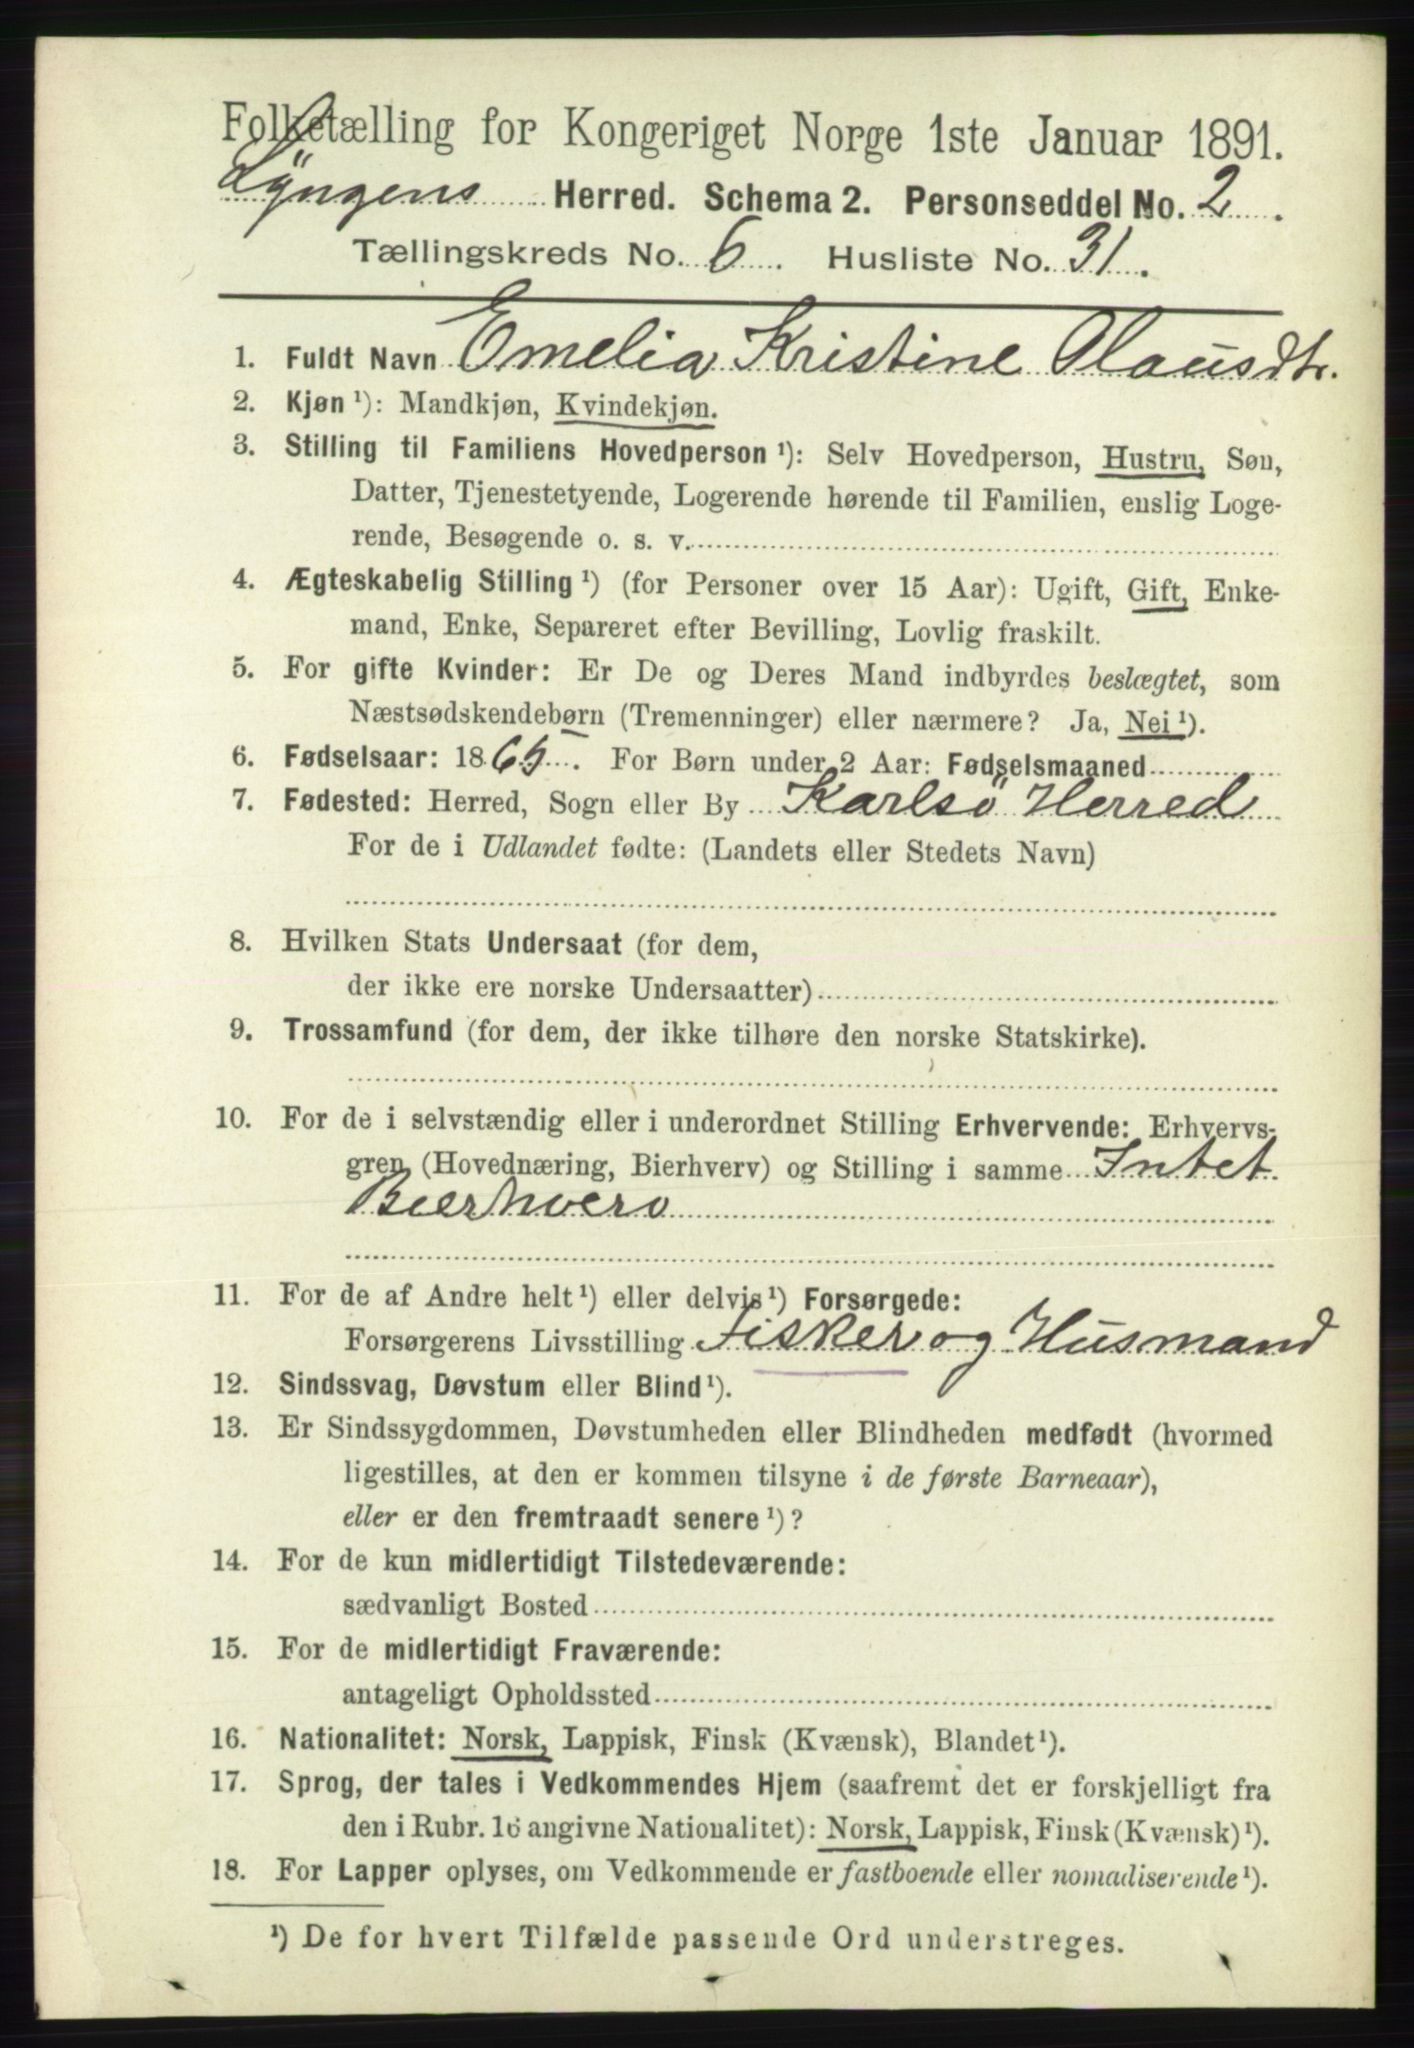 Folketælling for Kongeriget Norge 1ste Januar 1891.
Lyngens Herred. Schema 2. Personseddel No. 2.
Tællingskreds No. 6. Husliste No. 31.
1. Fuldt Navn Emelia Kristine Olausdtr.
2. Kjøn ¹): Mandkjøn, Kvindekjøn.
3. Stilling til Familiens Hovedperson ¹): Selv Hovedperson, Hustru, Søn,
Datter, Tjenestetyende, Logerende hørende til Familien, enslig Loge-
rende, Besøgende o. s. v.
4. Ægteskabelig Stilling ¹) (for Personer over 15 Aar): Ugift, Gift, Enke-
mand, Enke, Separeret efter Bevilling, Lovlig fraskilt.
5. For gifte Kvinder: Er De og Deres Mand indbyrdes beslægtet, som
Næstsødskendebørn (Tremenninger) eller nærmere? Ja, Nei ¹).
6. Fødselsaar: 1865. For Børn under 2 Aar: Fødselsmaaned
7. Fødested: Herred, Sogn eller By Karlsö Herred
For de i Udlandet fødte: (Landets eller Stedets Navn)
8. Hvilken Stats Undersaat (for dem,
der ikke ere norske Undersaatter)
9. Trossamfund (for dem, der ikke tilhøre den norske Statskirke).
10. For de i selvstændig eller i underordnet Stilling Erhvervende: Erhvervs-
gren (Hovednæring, Bierhverv) og Stilling i samme Intet
Bierhverv
11. For de af Andre helt ¹) eller delvis ¹) Forsørgede:
Forsørgerens Livsstilling Fisker og Husmand
12. Sindssvag, Døvstum eller Blind ¹).
13. Er Sindssygdommen, Døvstumheden eller Blindheden medfødt (hvormed
ligestilles, at den er kommen tilsyne i de første Barneaar),
eller er den fremtraadt senere ¹)?
14. For de kun midlertidigt Tilstedeværende:
sædvanligt Bosted
15. For de midlertidigt Fraværende:
antageligt Opholdssted
16. Nationalitet: Norsk, Lappisk, Finsk (Kvænsk), Blandet ¹).
17. Sprog, der tales i Vedkommendes Hjem (saafremt det er forskjelligt fra
den i Rubr. 16 angivne Nationalitet): Norsk, Lappisk, Finsk (Kvænsk) ¹).
18. For Lapper oplyses, om Vedkommende er fastboende eller nomadiserende ¹).
¹) De for hvert Tilfælde passende Ord understreges.